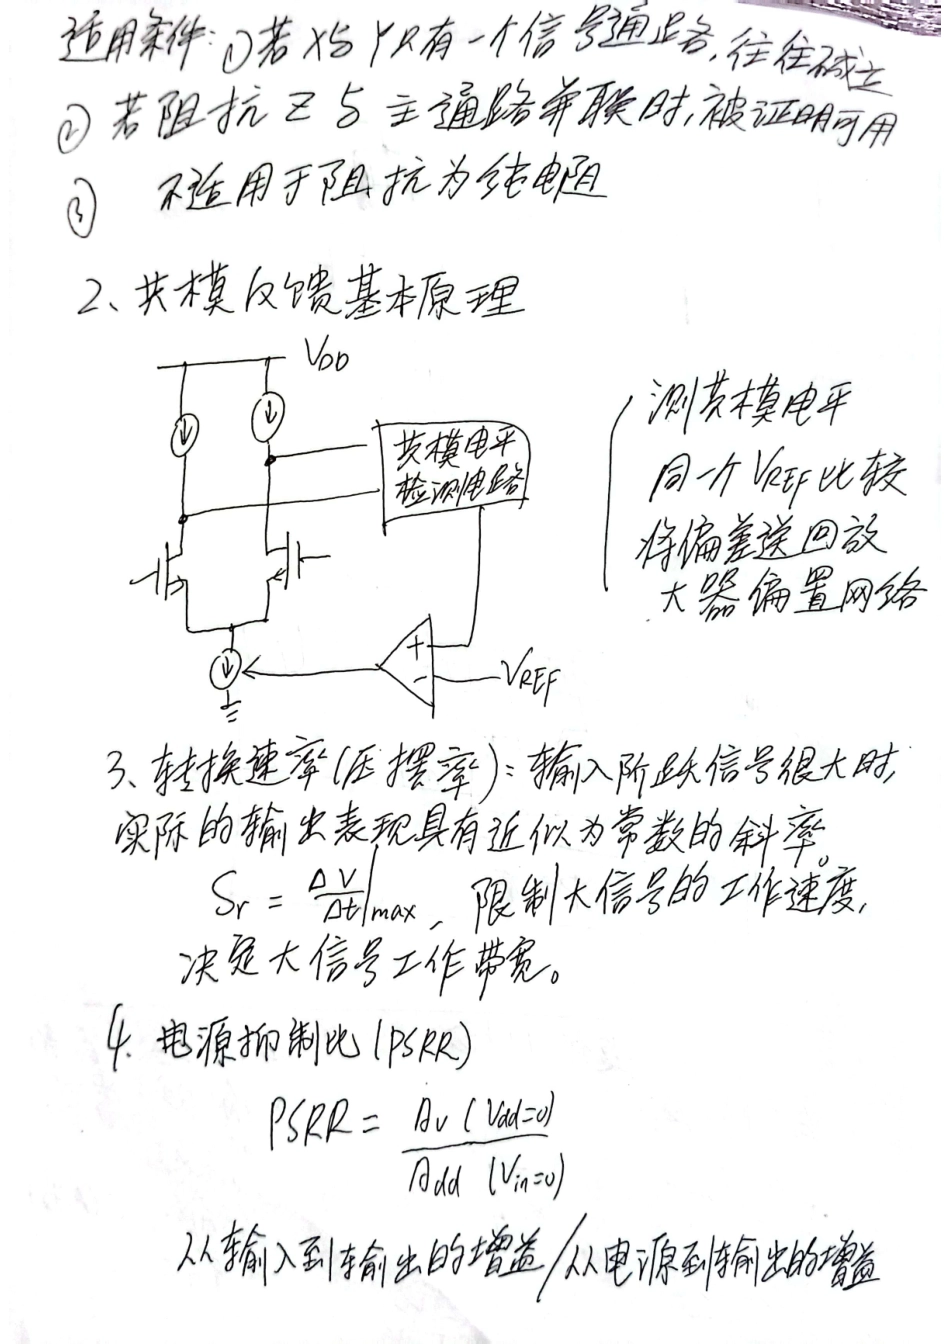 适用条件:①若X与Y只有一个信号通路,往往不成立
②若阻抗Z与主通路并联时,被证明可用
③ 不适用于阻抗为纯电阻
2、共模反馈基本原理
VDD
共模电平
检测电路
测共模电平
同一个VREF比较
将偏差送回放
大器偏置网络
+
-
VREF
3、转换速率(压摆率):输入阶跃信号很大时,
实际的输出表现具有近似为常数的斜率。
Sr = ΔV/Δt|max, 限制大信号的工作速度,
决定大信号工作带宽。
4. 电源抑制比(PSRR)
PSRR = Av(Vdd=0)
Add (Vin=0)
从输入到输出的增益/从电源到输出的增益